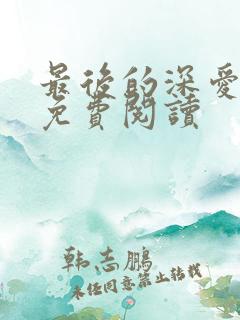 最後的深愛
免費閱讀
韩志鹏
未经同意禁止转载